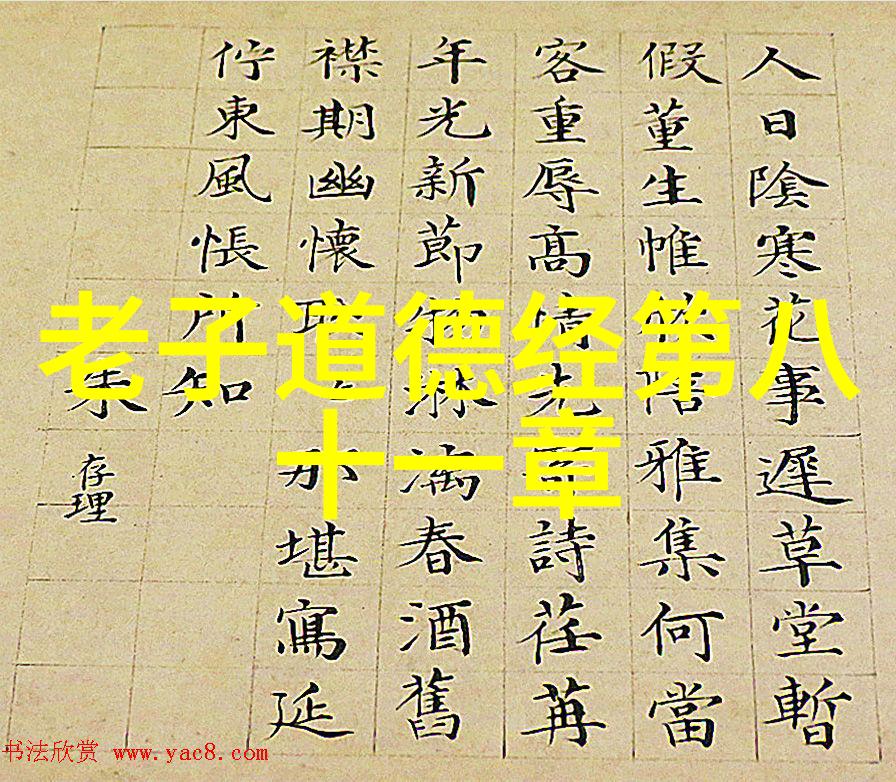 老子道德经第八
十一章
人日陰寒花事遲草堂暫
假董生帷陪雅集何當
客重辱高情先詩荏苒
年光新節淋漓春酒舊
襟期幽懷那堪寫延
佇東風悵所知
存理
书法欣赏 www.yac8.com